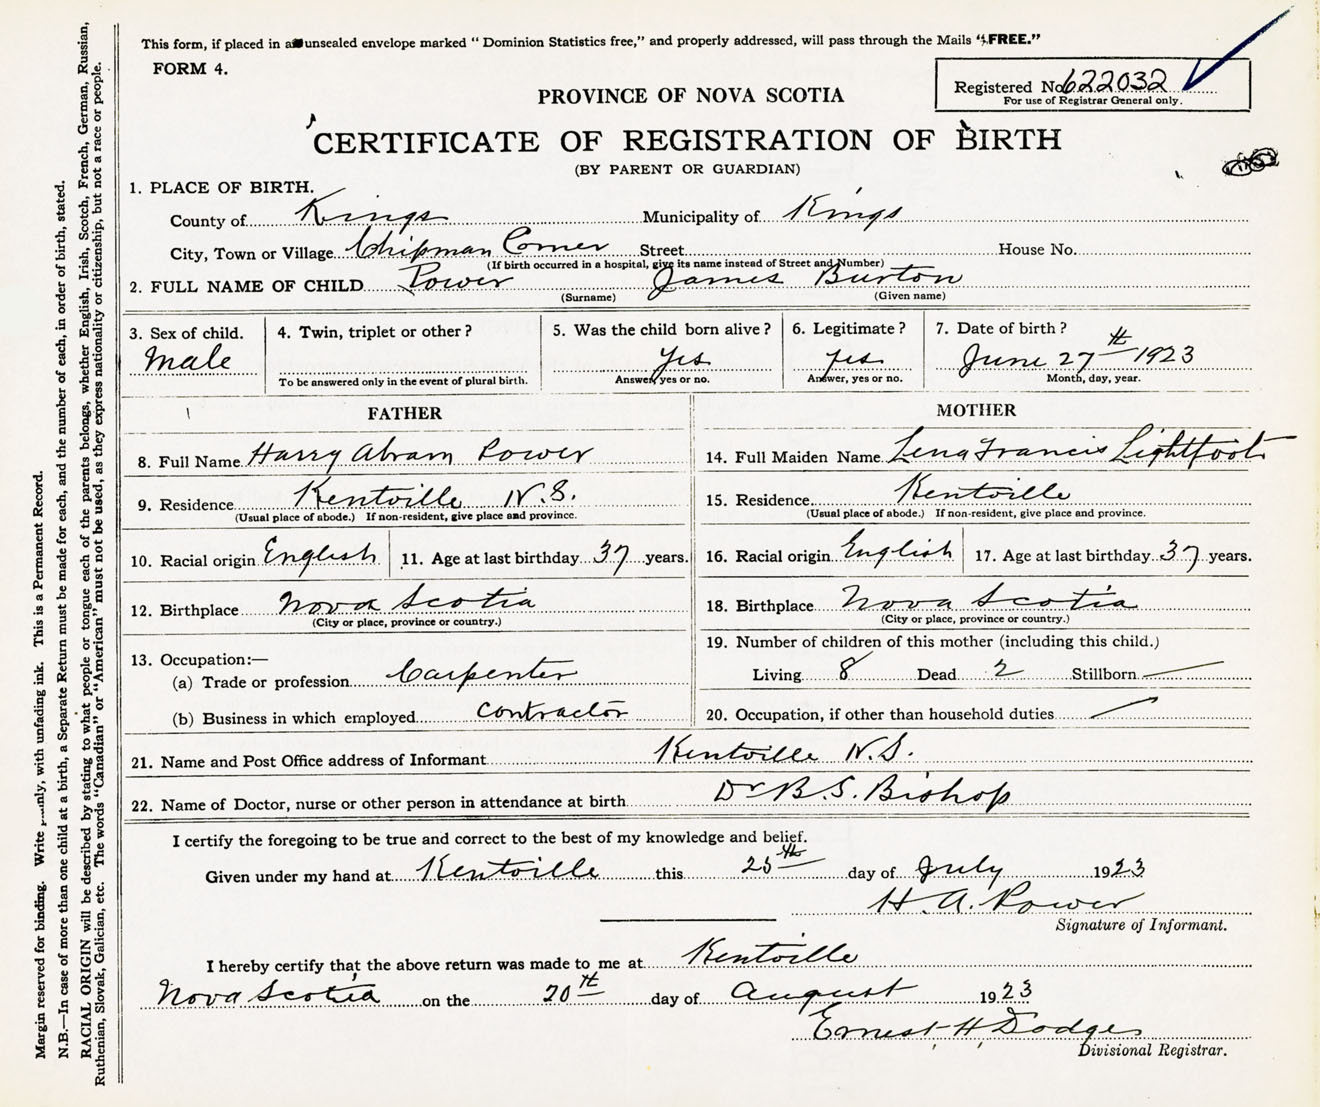 This form, if placed in an unsealed envelope marked " Dominion Statistics free," and properly addressed, will pass through the Mails "FREE."
FORM 4.
Registered No. 622032
For use of Registrar General only.
PROVINCE OF NOVA SCOTIA
CERTIFICATE OF REGISTRATION OF BIRTH
(BY PARENT OR GUARDIAN)
1. PLACE OF BIRTH.
County of Kings Municipality of Kings
City, Town or Village Chipman Corner Street House No.
(If birth occurred in a hospital, give its name instead of Street and Number)
2. FULL NAME OF CHILD Power James Burton
(Surname) (Given name)
3. Sex of child. 4. Twin, triplet or other ? 5. Was the child born alive ? 6. Legitimate ? 7. Date of birth ?
Male Yes yes June 27th 1923
To be answered only in the event of plural birth. Answer, yes or no. Answer, yes or no. Month, day, year.
FATHER
8. Full Name Harry Abram Power
9. Residence Kentville N.S.
(Usual place of abode.) If non-resident, give place and province.
10. Racial origin English 11. Age at last birthday 37 years.
12. Birthplace Nova Scotia
(City or place, province or country.)
13. Occupation:—
(a) Trade or profession Carpenter
(b) Business in which employed contractor
MOTHER
14. Full Maiden Name Lena Francis Lightfoot
15. Residence Kentville
(Usual place of abode.) If non-resident, give place and province.
16. Racial origin English 17. Age at last birthday 37 years.
18. Birthplace Nova Scotia
(City or place, province or country.)
19. Number of children of this mother (including this child.)
Living 8 Dead 2 Stillborn —
20. Occupation, if other than household duties —
21. Name and Post Office address of Informant Kentville N.S.
22. Name of Doctor, nurse or other person in attendance at birth Dr B.S. Bishop
I certify the foregoing to be true and correct to the best of my knowledge and belief.
Given under my hand at Kentville this 25th day of July 1923
H. A. Power
Signature of Informant.
I hereby certify that the above return was made to me at Kentville
Nova Scotia on the 20th day of August 1923
Ernest H Dodge
Divisional Registrar.
Margin reserved for binding. Write with unfading ink. This is a Permanent Record.
N.B.—In case of more than one child at a birth, a Separate Return must be made for each, and the number of each, in order of birth, stated.
RACIAL ORIGIN will be described by stating to what people or tongue each of the parents belongs, whether English, Irish, Scotch, French, German, Russian,
Ruthenian, Slovak, Galician, etc. The words "Canadian" or "American" must not be used, as they express nationality or citizenship, but not a race or people.